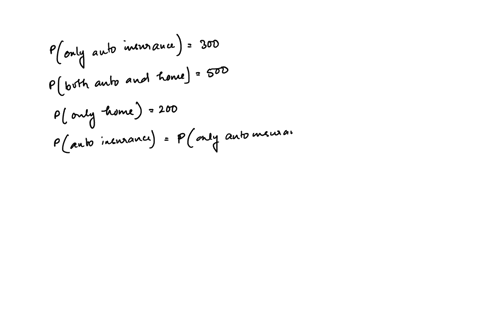 P(only auto insurance) = 300
P(both auto and home) = 500
P(only home) = 200
P(auto insurance) = P(only auto insura